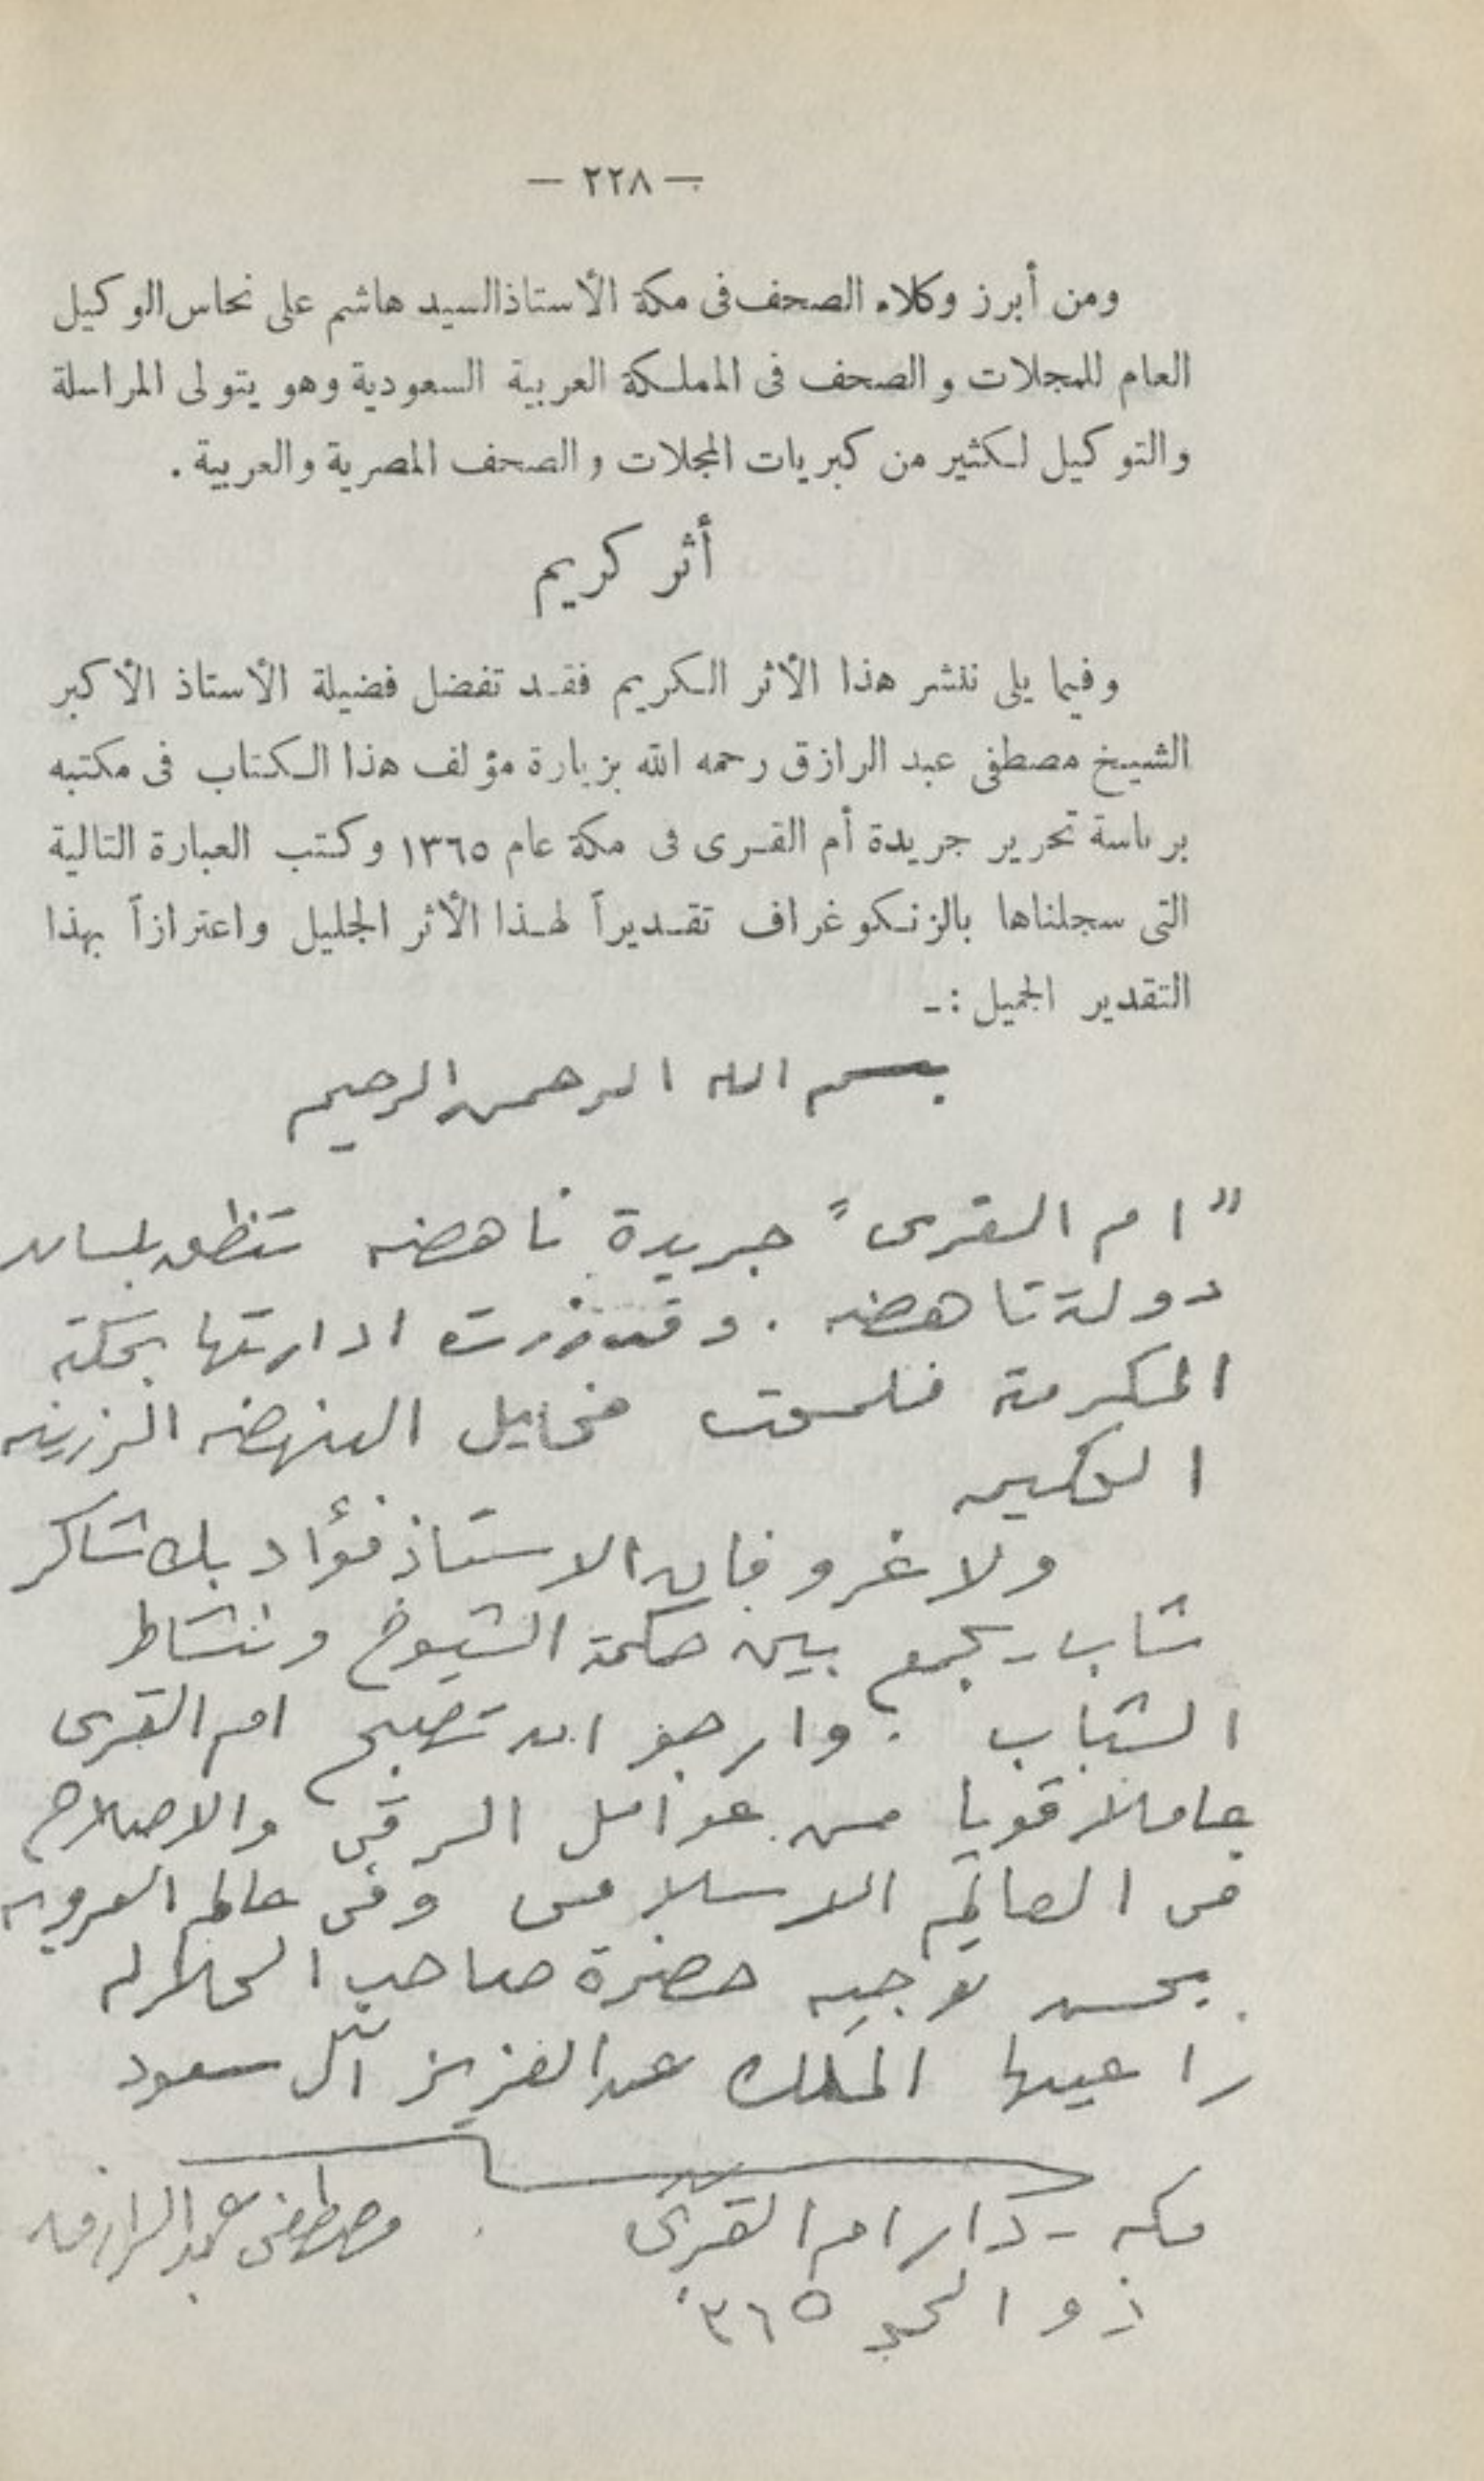 — ٢٢٨ —
ومن أبرز وكلاء الصحف فى مكة الأستاذ السيد هاشم على نحاس الوكيل
العام للمجلات والصحف فى المملكة العربية السعودية وهو يتولى المراسلة
والتوكيل لكثير من كبريات المجلات والصحف المصرية والعربية .
أثر كريم
وفيما يلى ننشر هذا الأثر الكريم فقد تفضل فضيلة الأستاذ الأكبر
الشيخ مصطفى عبد الرازق رحمه الله بزيارة مؤلف هذا الكتاب فى مكتبه
برءاسة تحرير جريدة أم القرى فى مكة عام ١٣٦٥ وكتب العبارة التالية
التى سجلناها بالزنكوغراف تقديراً لهذا الأثر الجليل واعتزازاً بهذا
التقدير الجميل :ـ
بسم الله الرحمن الرحيم
"ام القرى" جريدة ناهضه تنطق بلسان
دولة ناهضه . وقد زرت ادارتها بمكة
المكرمة فلمحت مخايل النهضه الرزينه
الحكيمه
ولا غرو فان الاستاذ فؤاد بك شاكر
شاب يجمع بين حكمة الشيوخ ونشاط
الشباب . وارجو ان تصبح ام القرى
عاملا قويا من عوامل الرقى والاصلاح
فى العالم الاسلامى وفى عالم العروبه
بحسن توجيه حضرة صاحب الجلاله
راعيها الملك عبد العزيز آل سعود
مكه - دار ام القرى
مصطفى عبد الرازق
ذو الحجه ١٣٦٥